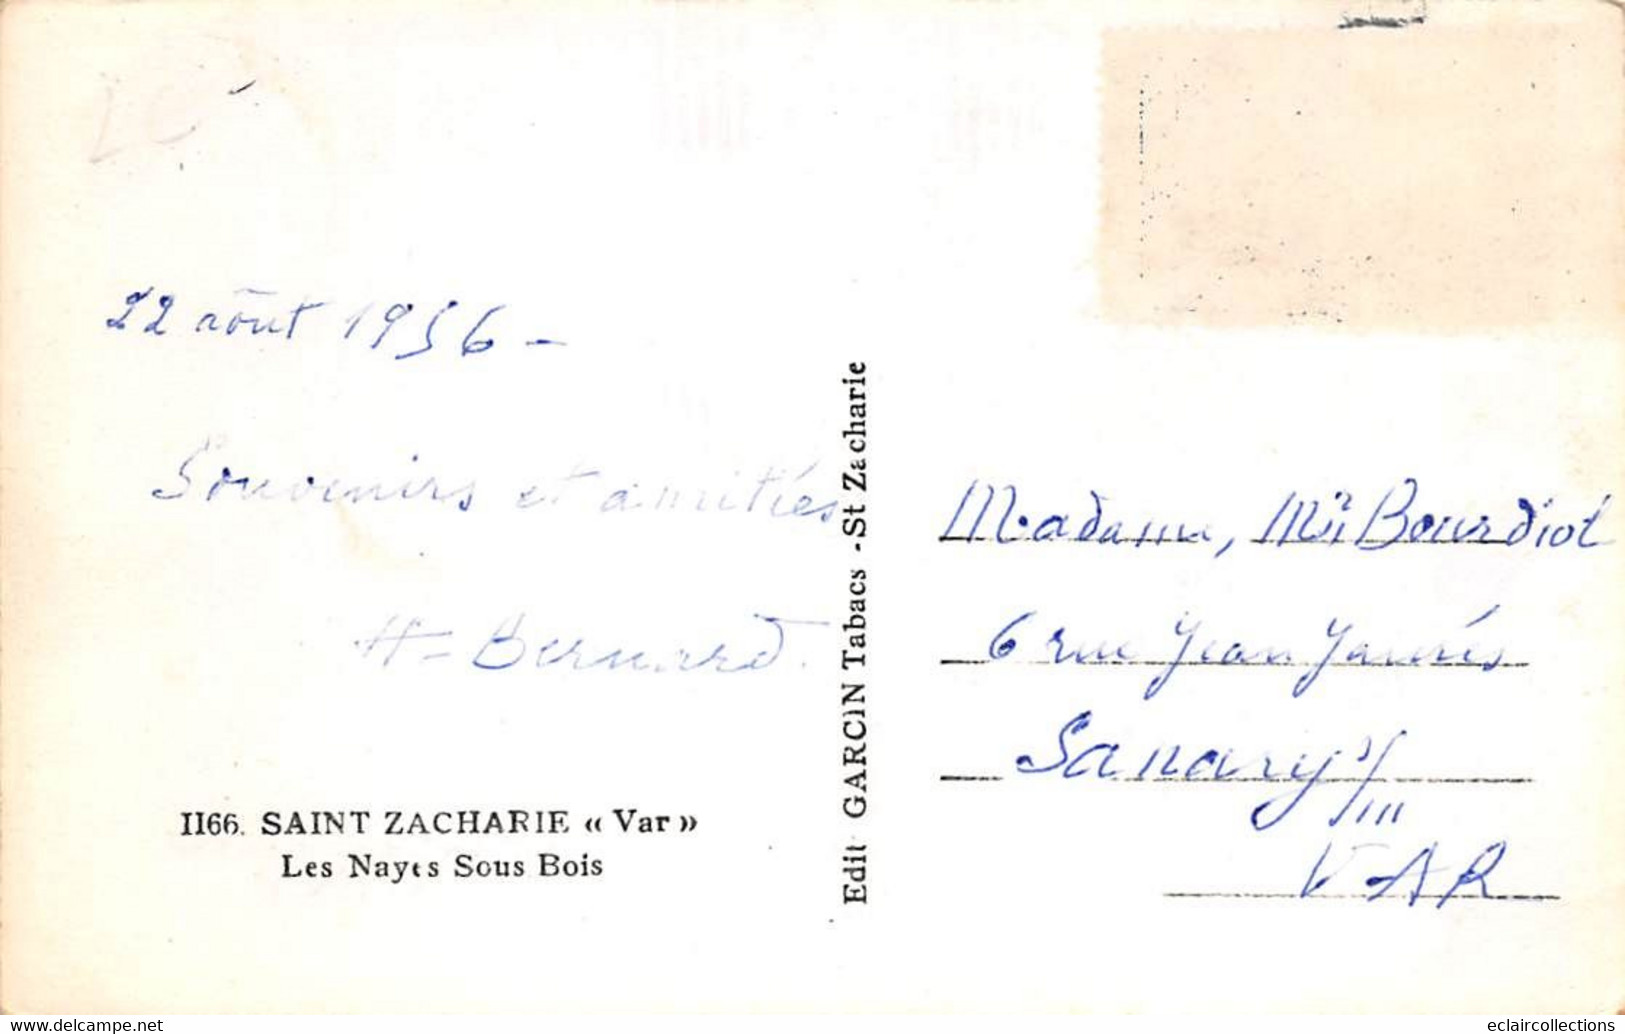 22 août 1956 -
Souvenirs et amitiés
H- Bernard.
1166. SAINT ZACHARIE « Var »
Les Nayes Sous Bois
Edit GARCIN Tabacs - St Zacharie
Madame, Bourdiol
6 rue Jean Jaurès
Sanary s/
VAR
eclaircollections